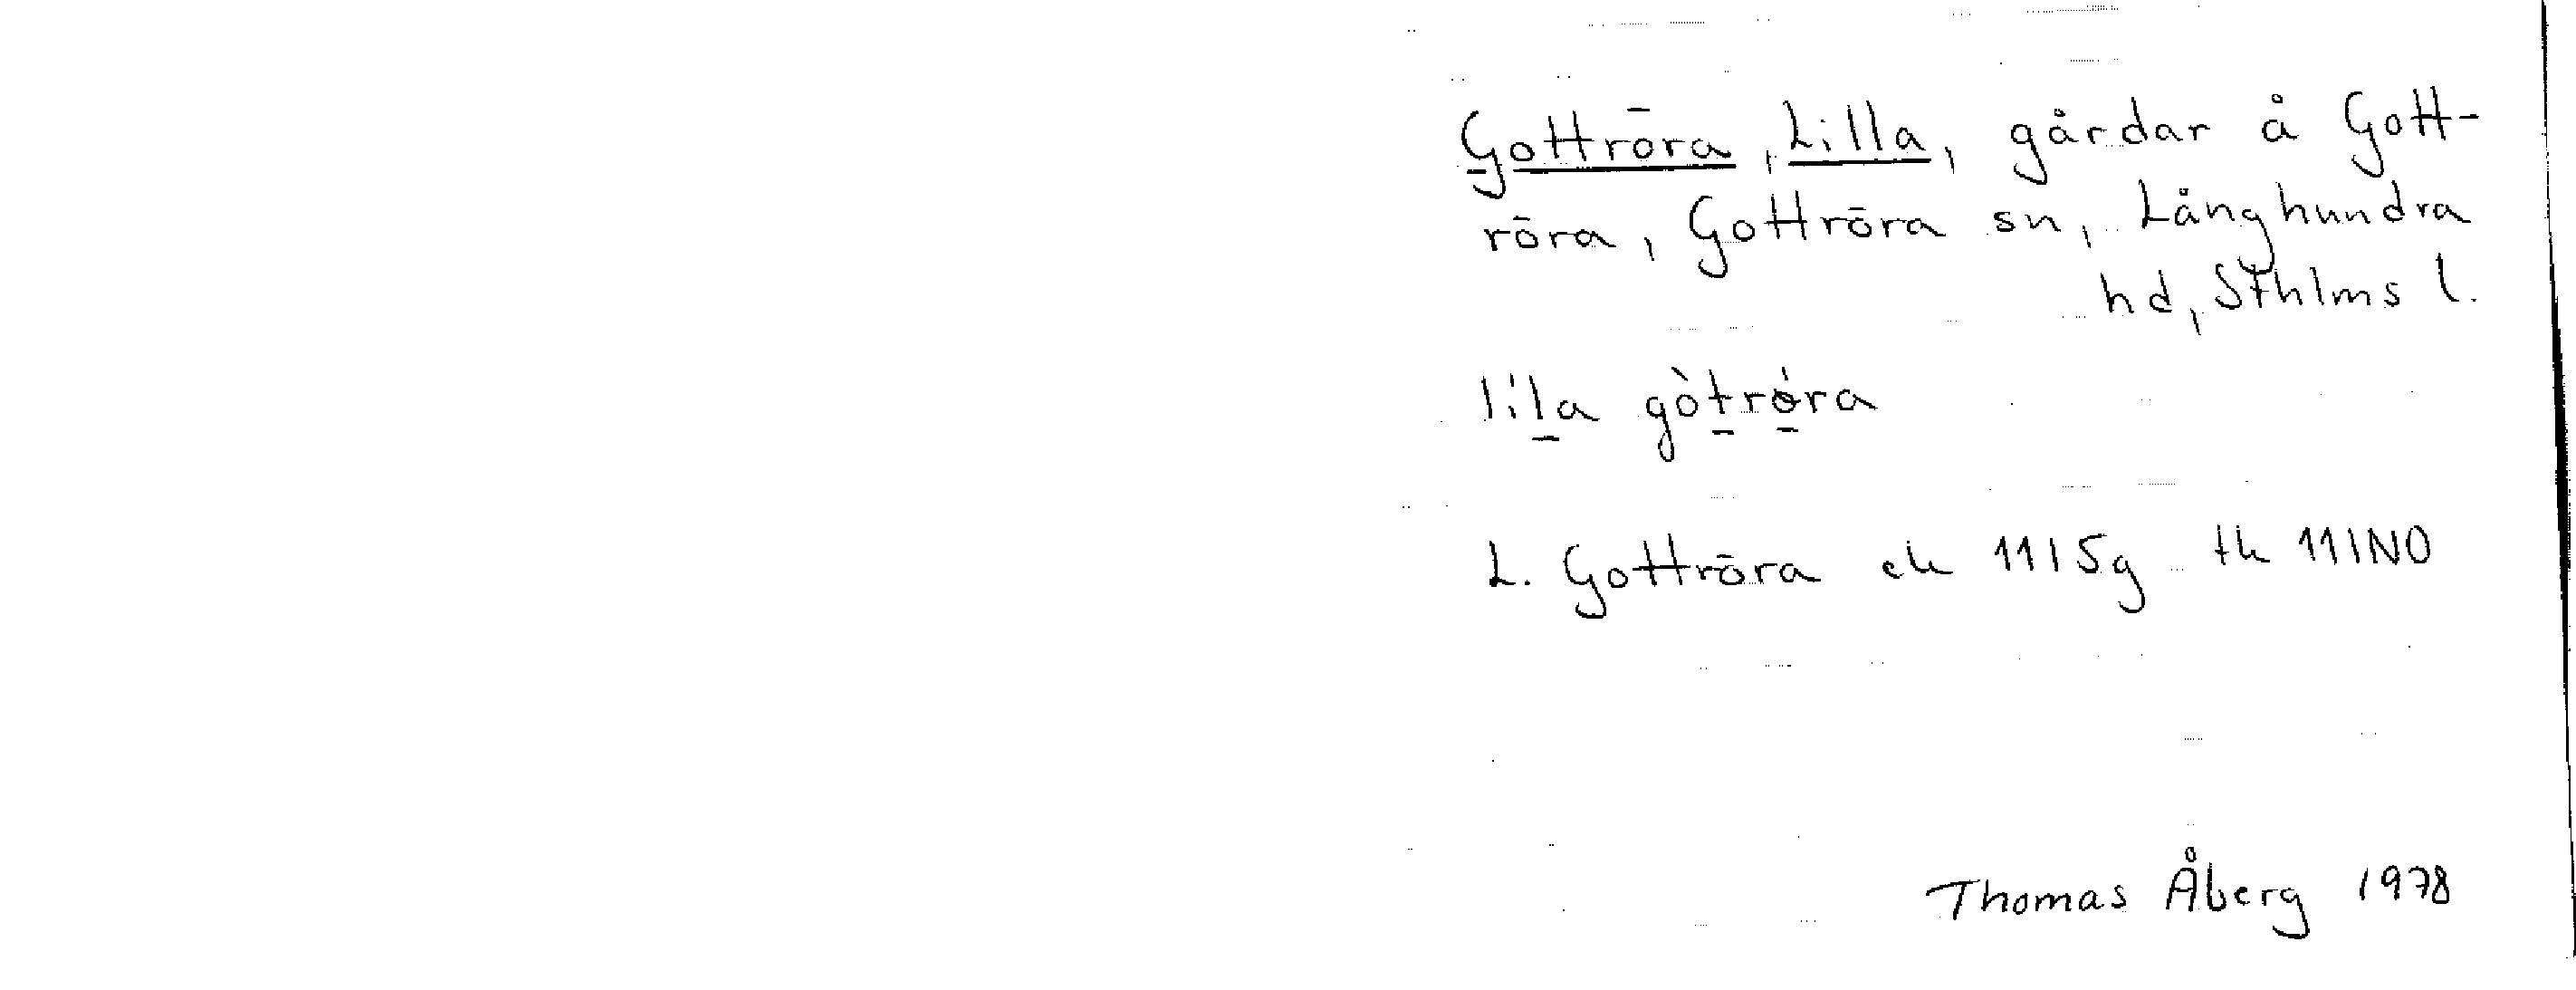 Gottröra, Lilla, gårdar å Gott-
röra, Gottröra sn, Långhundra
hd, Sthlms l.
líla gòtrǿra
L. Gottröra ek 11I5g tk 11INO
Thomas Åberg 1978